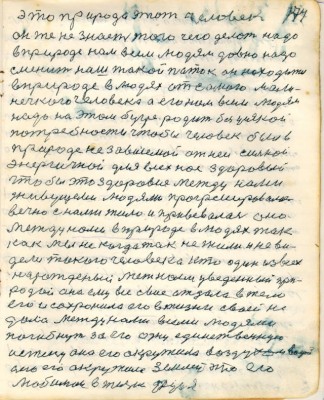 это природа этот человек 174
он же не знает того чего делат надо
в природе нам всем людям довно надо
сменит наш такой паток он находится
в природе в людях от самого мале-
нечкого человека а его нам всем людям
надо на этом бугре родит бацяской
потребности чтобы человек был в
природе не зависемой от ней силной
энергичной для всех нас здоровый
что бы это здоровие между нами
живущими людями прогресировало
вечно с нами жило и прививалас оно
между нами в природе в людях так
как мы не когда так не жили и не ви-
дели такого человека кто один из всех
надожденый
родой она ему все свие отдала в тело
его и сохранила его в жизни своей не
дала между нами всеми людями
погибнут за его одну единственную
истену она его окружила воздухом и водой
оно его окружило землей это его
любимое в жизни